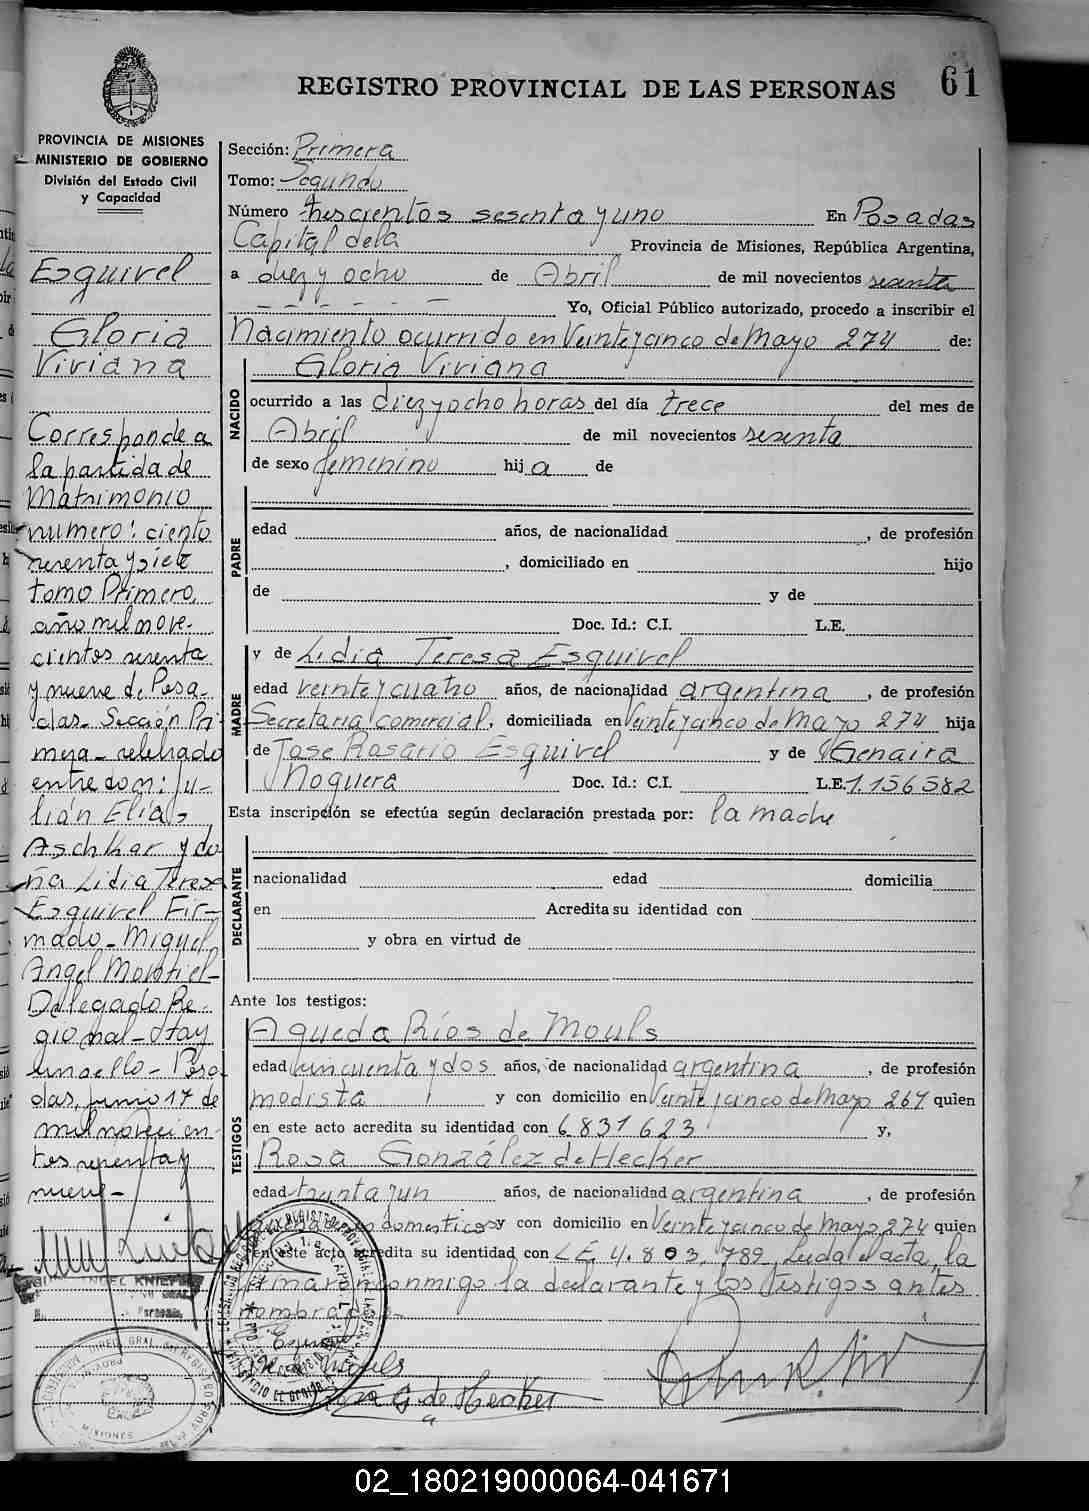 REGISTRO PROVINCIAL DE LAS PERSONAS 61
PROVINCIA DE MISIONES
MINISTERIO DE GOBIERNO
División del Estado Civil
y Capacidad
Esquivel
Gloria
Viviana
Corresponde a
la partida de
Matrimonio
numero: ciento
sesenta y siete
tomo Primero,
año mil nove-
cientos sesenta
y nueve de Posa-
das- Sección Pri-
mera- celebrado
entre don: Ju-
lián Elías
Aschkar y do-
ña Lidia Teresa
Esquivel Fir-
mado- Miguel
Angel Montiel-
Delegado Re-
gional- Hay
un sello- Posa-
das, junio 17 de
mil novecien-
tos sesenta y
nueve-
Sección: Primera
Tomo: Segundo
Número trescientos sesenta y uno En Posadas
Capital de la Provincia de Misiones, República Argentina,
a diez y ocho de Abril de mil novecientos sesenta
Yo, Oficial Público autorizado, procedo a inscribir el
Nacimiento ocurrido en Veinte y cinco de Mayo 274 de:
NACIDO
Gloria Viviana
ocurrido a las diez y ocho horas del día trece del mes de
Abril de mil novecientos sesenta
de sexo femenino hij a de
PADRE
edad años, de nacionalidad , de profesión
, domiciliado en hijo
de y de
Doc. Id.: C.I. L.E.
MADRE
y de Lidia Teresa Esquivel
edad veinte y cuatro años, de nacionalidad argentina, de profesión
Secretaria comercial, domiciliada en Veinte y cinco de Mayo 274 hija
de Jose Rosario Esquivel y de Genaira
Noguera Doc. Id.: C.I. L.E. 1.156582
Esta inscripción se efectúa según declaración prestada por: la madre
DECLARANTE
nacionalidad edad domicilia
en Acredita su identidad con
y obra en virtud de
Ante los testigos:
TESTIGOS
Agueda Ríos de Mouls
edad cincuenta y dos años, de nacionalidad argentina, de profesión
modista y con domicilio en Veinte y cinco de Mayo 267 quien
en este acto acredita su identidad con 6831623 y,
Rosa González de Hecker
edad treinta y un años, de nacionalidad argentina, de profesión
domesticos y con domicilio en Veinte y cinco de Mayo 274 quien
en este acto acredita su identidad con L.E. 4.803.789 Leida el acta, la
firmaron conmigo la declarante y los testigos antes
nombrados-
Mouls
Rosa G. de Hecker
MISIONES
02_180219000064-041671